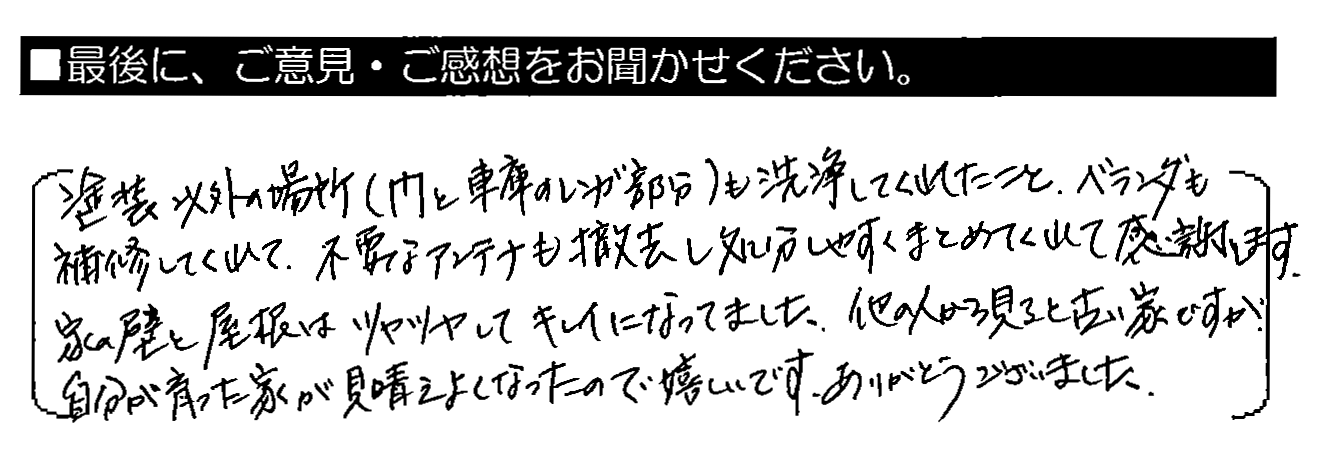 ■最後に、ご意見・ご感想をお聞かせください。
塗装以外の場所(門と車庫のレンガ部分)も洗浄してくれたこと、ベランダも
補修してくれて、不要なアンテナも撤去し処分しやすくまとめてくれて感謝します。
家の壁と屋根はツヤツヤしてキレイになってました。他の人から見ると古い家ですが、
自分が育った家が見晴えよくなったので嬉しいです。ありがとうございました。